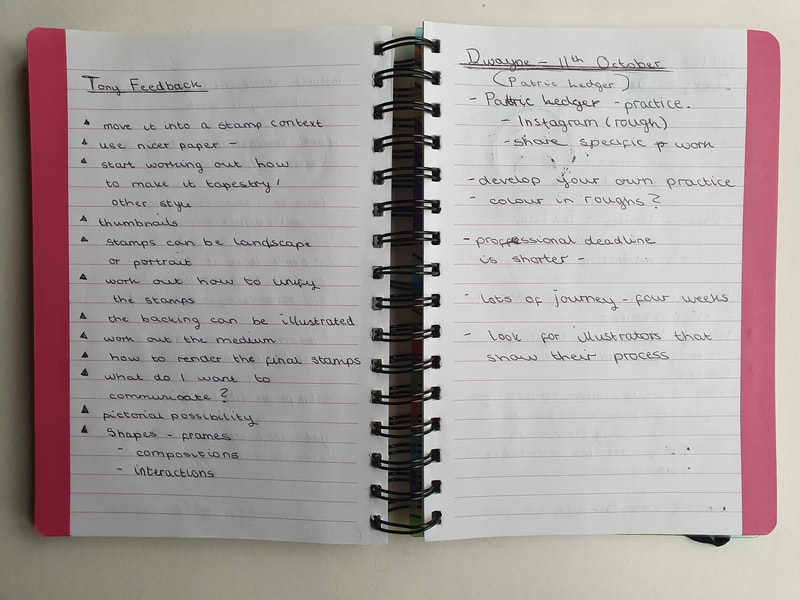 Tony Feedback
move it into a stamp context
use nicer paper -
start working out how
to make it tapestry/
other style
thumbnails
stamps can be landscape
or portrait
work out how to unify
the stamps
the backing can be illustrated
work out the medium
how to render the final stamps
what do I want to
communicate?
pictorial possibility
Shapes - frames
- compositions
- interactions
Dwayne - 11th October
(Patric Ledger)
- Patric Ledger - practice.
- Instagram (rough)
- share specific work
- develop your own practice
- colour in roughs?
- proffessional deadline
is shorter -
- lots of journey - four weeks
- look for illustrators that
show their process